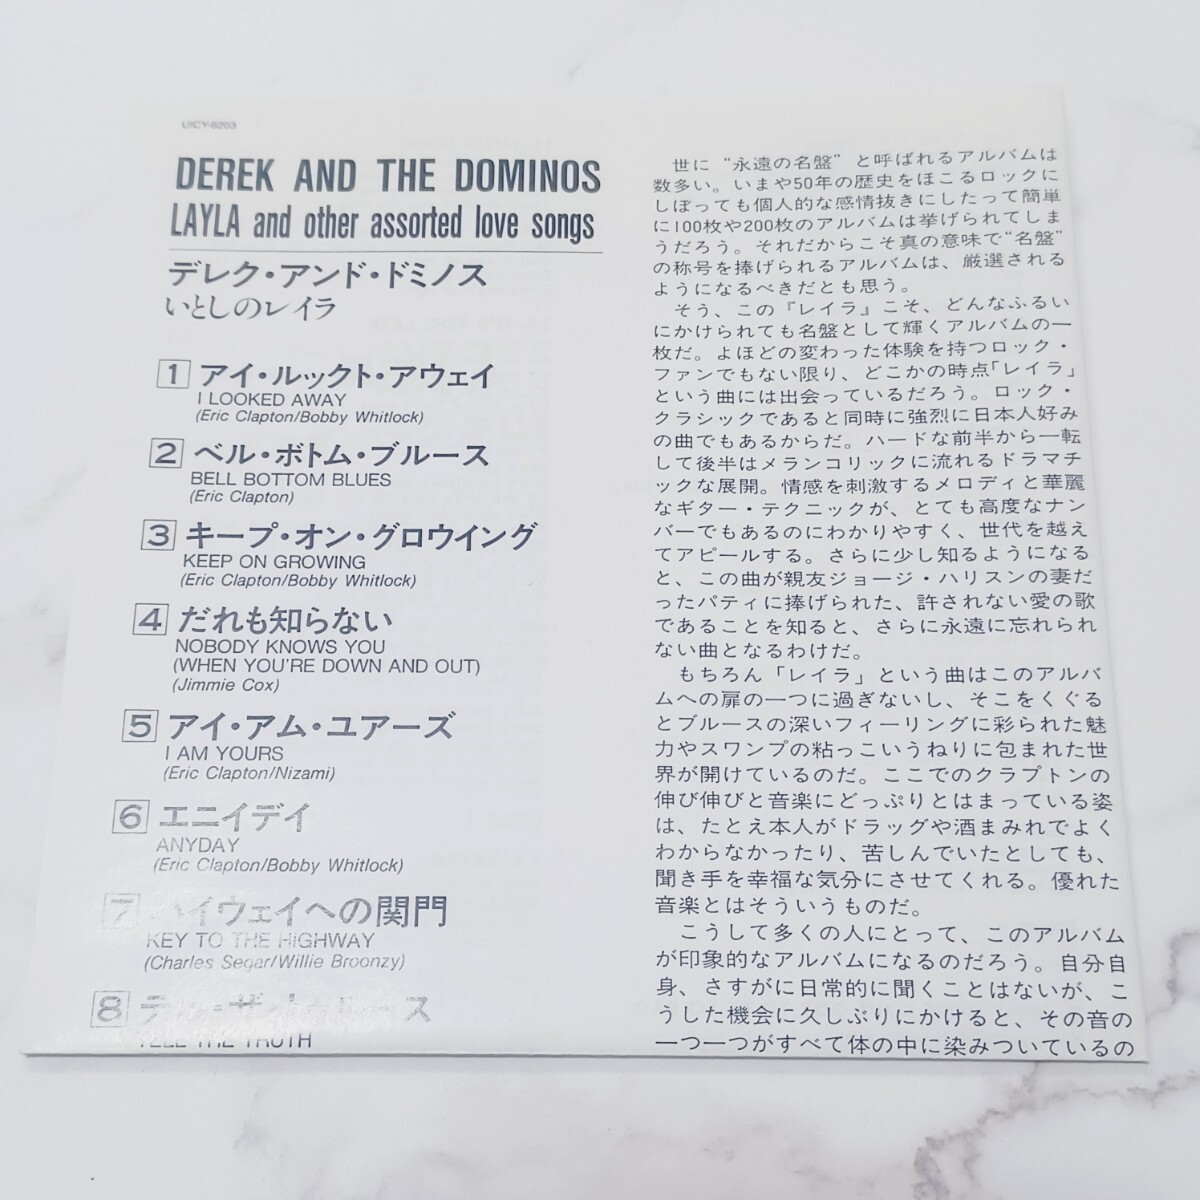 UICY-6203
DEREK AND THE DOMINOS
LAYLA and other assorted love songs
デレク・アンド・ドミノス
いとしのレイラ
1 アイ・ルックト・アウェイ
I LOOKED AWAY
(Eric Clapton/Bobby Whitlock)
2 ベル・ボトム・ブルース
BELL BOTTOM BLUES
(Eric Clapton)
3 キープ・オン・グロウイング
KEEP ON GROWING
(Eric Clapton/Bobby Whitlock)
4 だれも知らない
NOBODY KNOWS YOU
(WHEN YOU'RE DOWN AND OUT)
(Jimmie Cox)
5 アイ・アム・ユアーズ
I AM YOURS
(Eric Clapton/Nizami)
6 エニイデイ
ANYDAY
(Eric Clapton/Bobby Whitlock)
7 ハイウェイへの関門
KEY TO THE HIGHWAY
(Charles Segar/Willie Broonzy)
8 テル・ザ・トゥルース
TELL THE TRUTH
世に“永遠の名盤”と呼ばれるアルバムは
数多い。いまや50年の歴史をほこるロックに
しぼっても個人的な感情抜きにしたって簡単
に100枚や200枚のアルバムは挙げられてしま
うだろう。それだからこそ真の意味で“名盤”
の称号を捧げられるアルバムは、厳選される
ようになるべきだとも思う。
そう、この『レイラ』こそ、どんなふるい
にかけられても名盤として輝くアルバムの一
枚だ。よほどの変わった体験を持つロック・
ファンでもない限り、どこかの時点「レイラ」
という曲には出会っているだろう。ロック・
クラシックであると同時に強烈に日本人好み
の曲でもあるからだ。ハードな前半から一転
して後半はメランコリックに流れるドラマチ
ックな展開。情感を刺激するメロディと華麗
なギター・テクニックが、とても高度なナン
バーでもあるのにわかりやすく、世代を越え
てアピールする。さらに少し知るようになる
と、この曲が親友ジョージ・ハリスンの妻だ
ったパティに捧げられた、許されない愛の歌
であることを知ると、さらに永遠に忘れられ
ない曲となるわけだ。
もちろん「レイラ」という曲はこのアルバ
ムへの扉の一つに過ぎないし、そこをくぐる
とブルースの深いフィーリングに彩られた魅
力やスワンプの粘っこいうねりに包まれた世
界が開けているのだ。ここでのクラプトンの
伸び伸びと音楽にどっぷりとはまっている姿
は、たとえ本人がドラッグや酒まみれでよく
わからなかったり、苦しんでいたとしても、
聞き手を幸福な気分にさせてくれる。優れた
音楽とはそういうものだ。
こうして多くの人にとって、このアルバム
が印象的なアルバムになるのだろう。自分自
身、さすがに日常的に聞くことはないが、こ
うした機会に久しぶりにかけると、その音の
一つ一つがすべて体の中に染みついているの